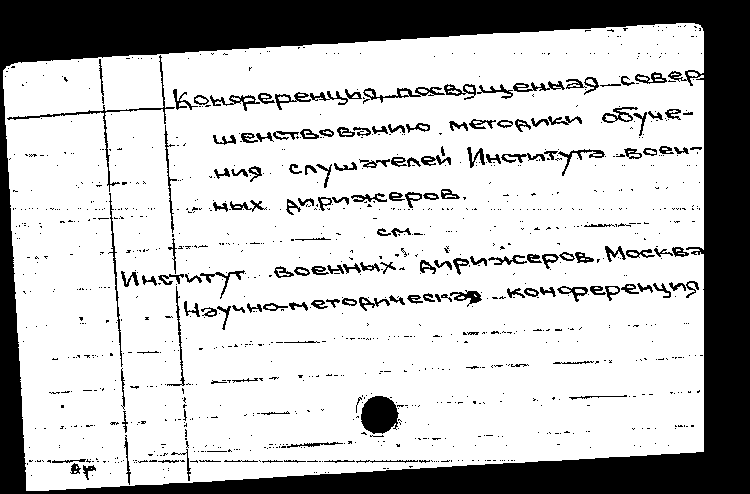 Конференция, посвященная совер-
шенствованию методики обуче-
ния слушателей Института воен-
ных дирижеров.
см.
Институт военных дирижеров. Москва
Научно-методическая конференция.